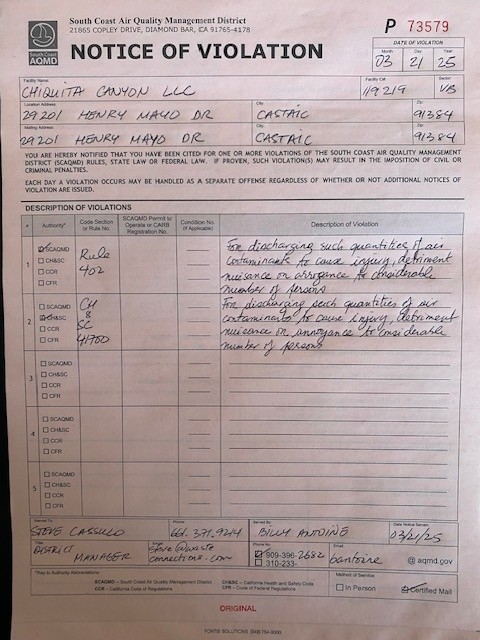 South Coast Air Quality Management District
21865 COPLEY DRIVE, DIAMOND BAR, CA 91765-4178
NOTICE OF VIOLATION
South Coast
AQMD
P 73579
DATE OF VIOLATION
Month Day Year
03 21 25
Facility Name Facility ID# Sector
CHIQUITA CANYON LLC 119219 VB
Location Address City Zip
29201 HENRY MAYO DR CASTAIC 91384
Mailing Address City Zip
29201 HENRY MAYO DR CASTAIC 91384
YOU ARE HEREBY NOTIFIED THAT YOU HAVE BEEN CITED FOR ONE OR MORE VIOLATIONS OF THE SOUTH COAST AIR QUALITY MANAGEMENT
DISTRICT (SCAQMD) RULES, STATE LAW OR FEDERAL LAW. IF PROVEN, SUCH VIOLATION(S) MAY RESULT IN THE IMPOSITION OF CIVIL OR
CRIMINAL PENALTIES.
EACH DAY A VIOLATION OCCURS MAY BE HANDLED AS A SEPARATE OFFENSE REGARDLESS OF WHETHER OR NOT ADDITIONAL NOTICES OF
VIOLATION ARE ISSUED.
DESCRIPTION OF VIOLATIONS
# Authority* Code Section or Rule No. SCAQMD Permit to Operate or CARB Registration No. Condition No. (If Applicable) Description of Violation
1
SCAQMD
CH&SC
CCR
CFR
Rule
402
For discharging such quantities of air
contaminants to cause injury, detriment
nuisance or annoyance to considerable
number of persons
2
SCAQMD
CH&SC
CCR
CFR
CH
&
SC
41700
For discharging such quantities of air
contaminants to cause injury, detriment
nuisance or annoyance to considerable
number of persons
3
SCAQMD
CH&SC
CCR
CFR
4
SCAQMD
CH&SC
CCR
CFR
5
SCAQMD
CH&SC
CCR
CFR
Served To Phone Served By Date Notice Served
STEVE CASSULO 661.371.9214 BILLY ANTOINE 03/21/25
Title Email Phone No. Email
DISTRICT MANAGER
connections.com
909-396-2682
310-233-
bantoine @ aqmd.gov
*Key to Authority Abbreviations: Method of Service
SCAQMD – South Coast Air Quality Management District CH&SC – California Health and Safety Code
CCR – California Code of Regulations CFR – Code of Federal Regulations
In Person Certified Mail
ORIGINAL